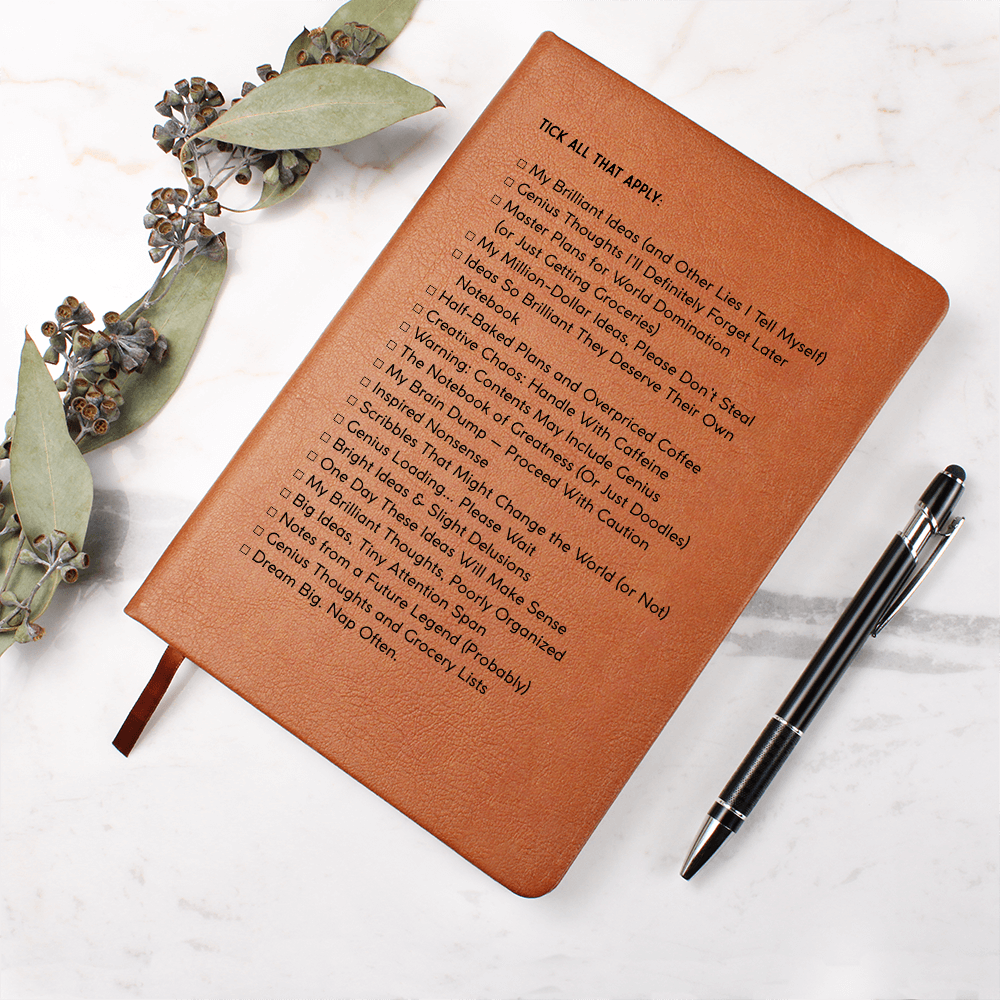 TICK ALL THAT APPLY:
☐ My Brilliant Ideas (and Other Lies I Tell Myself)
☐ Genius Thoughts I'll Definitely Forget Later
☐ Master Plans for World Domination
(or Just Getting Groceries)
☐ My Million-Dollar Ideas, Please Don't Steal
☐ Ideas So Brilliant They Deserve Their Own
Notebook
☐ Half-Baked Plans and Overpriced Coffee
☐ Creative Chaos: Handle With Caffeine
☐ Warning: Contents May Include Genius
☐ The Notebook of Greatness (Or Just Doodles)
☐ My Brain Dump – Proceed With Caution
☐ Inspired Nonsense
☐ Scribbles That Might Change the World (or Not)
☐ Genius Loading... Please Wait
☐ Bright Ideas & Slight Delusions
☐ One Day These Ideas Will Make Sense
☐ My Brilliant Thoughts, Poorly Organized
☐ Big Ideas, Tiny Attention Span
☐ Notes from a Future Legend (Probably)
☐ Genius Thoughts and Grocery Lists
☐ Dream Big. Nap Often.